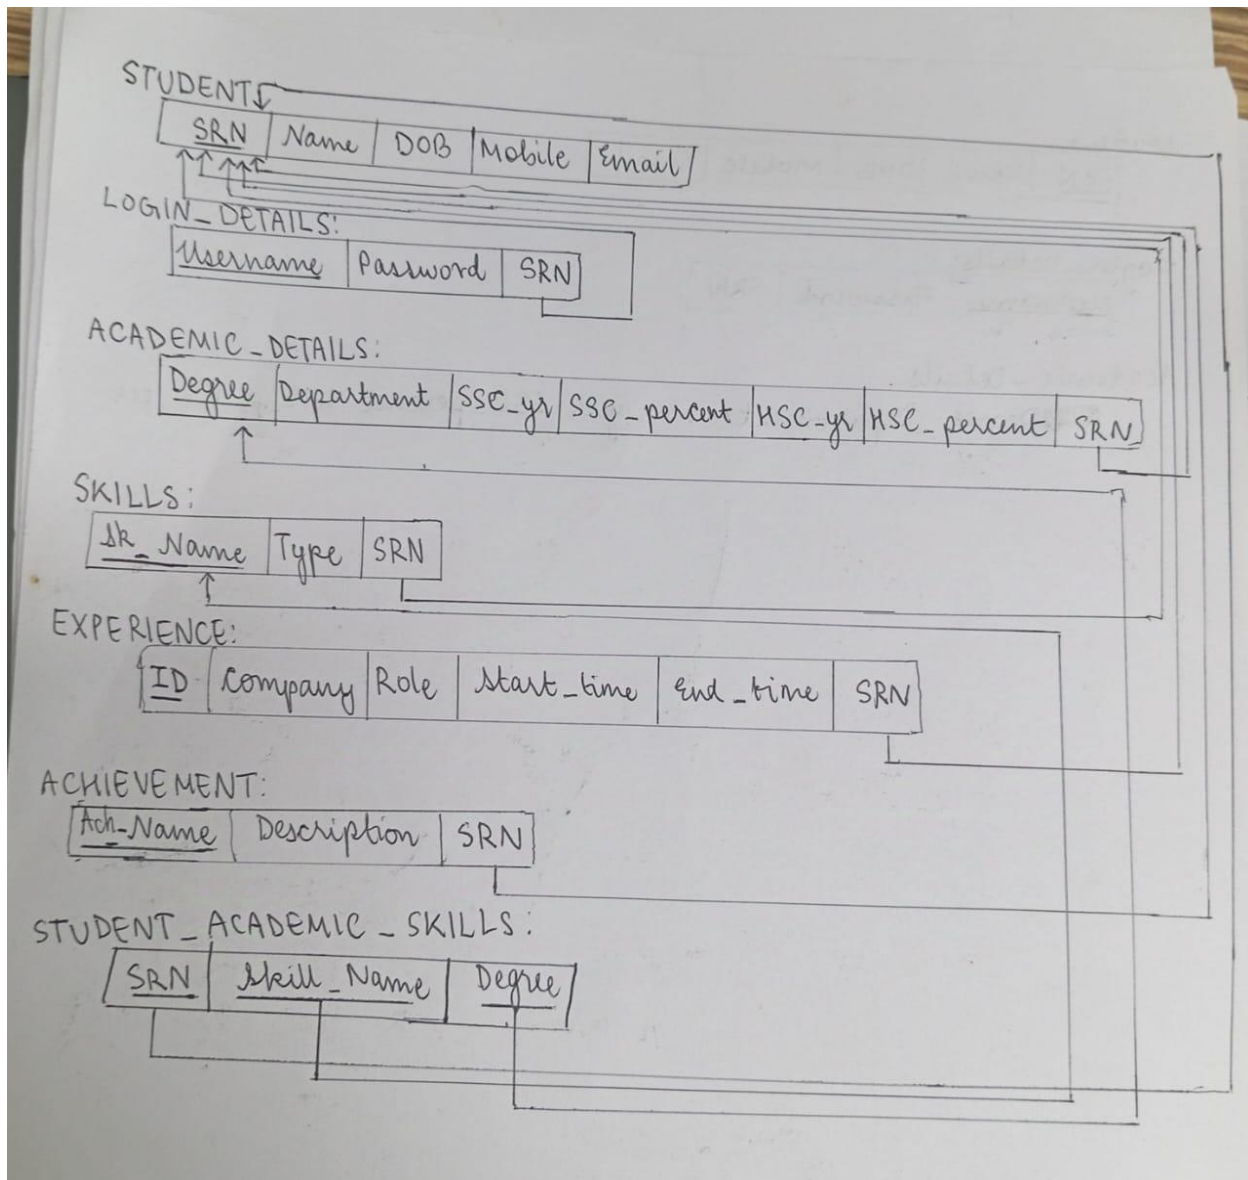 STUDENT
SRN Name DOB Mobile Email
LOGIN_DETAILS:
Username Password SRN
ACADEMIC_DETAILS:
Degree Department SSC_yr SSC_percent HSC_yr HSC_percent SRN
SKILLS:
Sk_Name Type SRN
EXPERIENCE:
ID Company Role Start_time End_time SRN
ACHIEVEMENT:
Ach_Name Description SRN
STUDENT_ACADEMIC_SKILLS:
SRN Skill_Name Degree